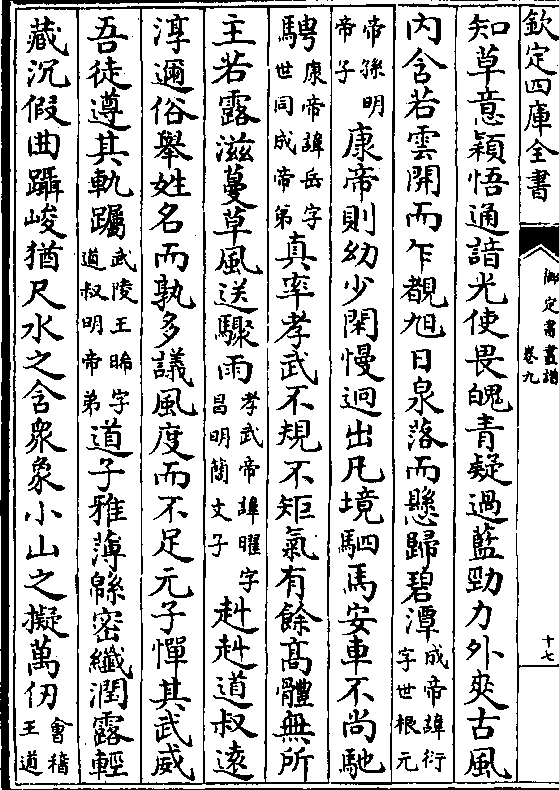 欽定四庫全書
御定書畫譜
卷九
十七
知草意穎悟通諳光使畏魄青疑過藍勁力外爽古風
内含若雲開而乍覩旭日泉落而懸歸碧潭成帝諱衍字世根元
帝孫明帝子康帝則幼少閑慢迥出凡境駟馬安車不尚馳
騁康帝諱岳字世同成帝弟真率孝武不規不矩氣有餘高體無所
主若露滋蔓草風送驟雨孝武帝諱曜字昌明簡文子赳赳道叔遠
淳邇俗舉姓名而孰多議風度而不足元子憚其武威
吾徒遵其軌躅武陵王晞字道叔明帝弟道子雅薄緜密纖潤露輕
藏沉假曲躡峻猶尺水之含衆象小山之擬萬仞會稽王道